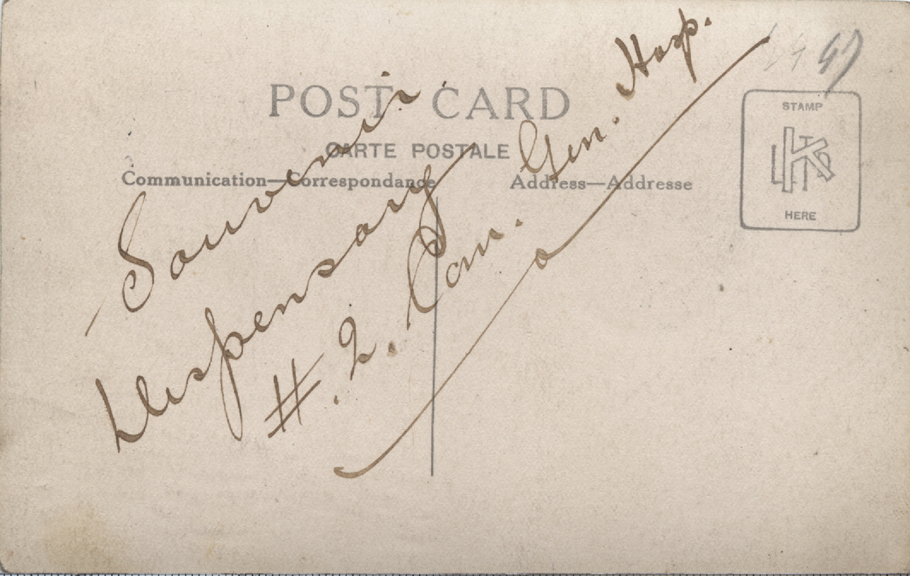 POST CARD
CARTE POSTALE
Communication—Correspondance
Address—Addresse
STAMP
HERE
Souvenir
Dispensary
#.2. Can. Gen. Hosp.